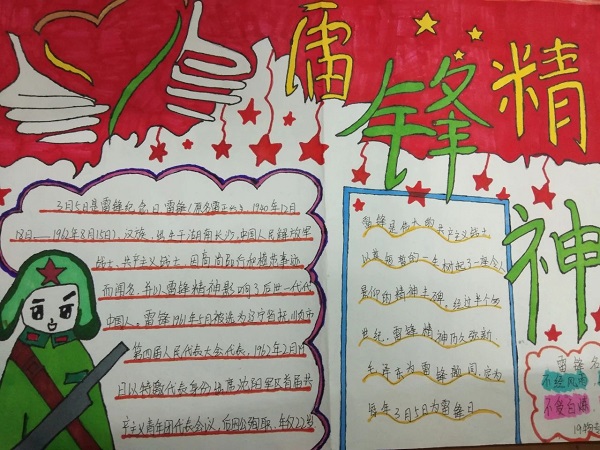 雷锋精神
3月5日是雷锋纪念日,雷锋(原名雷正兴,1940年12月
18日——1962年8月15日),汉族,出生于湖南长沙,中国人民解放军
战士,共产主义战士,因
而闻名,并以雷锋精神影响了后世一代代
中国人。雷锋1961年5月被选为辽宁省抚顺市
第四届人民代表大会代表,1962年2月19
日以特邀代表身份
主义青年团代表会议,后因公殉职,年仅22岁
雷锋是伟大的共产主义战士
以其短暂的一生树起了一座令人
景仰的精神丰碑,经过半个
世纪,雷锋精神历久弥新
毛泽东为雷锋题词,定为
每年3月5日为雷锋日
雷锋名
不经风雨